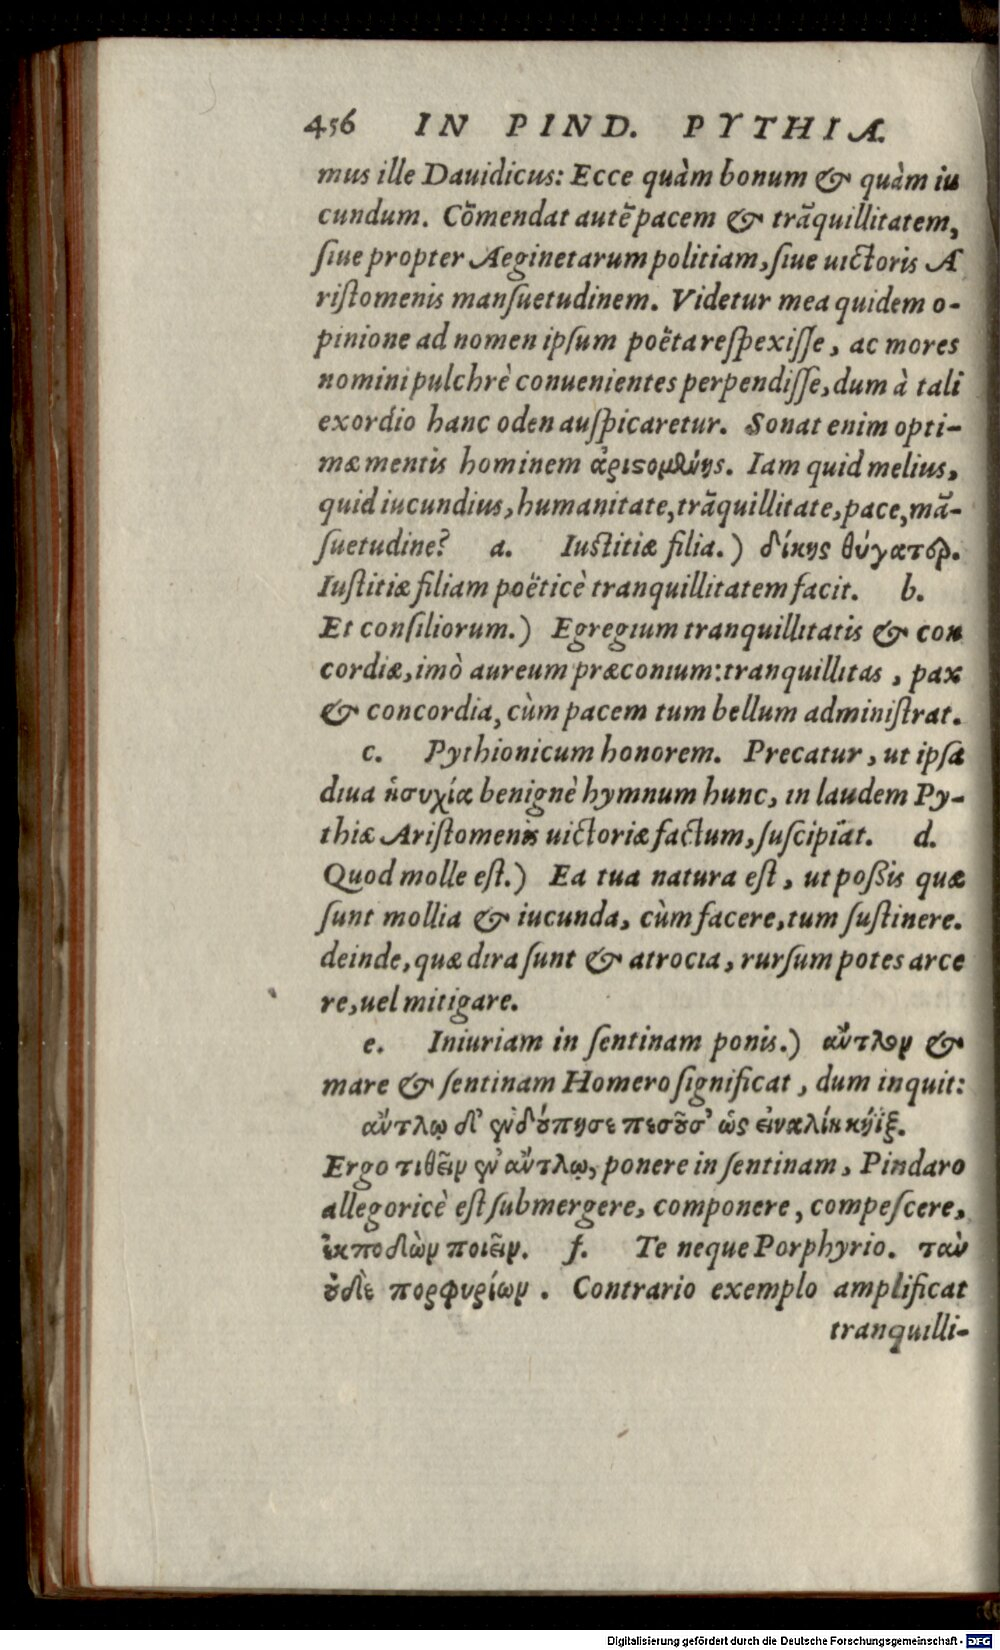 456 IN PIND. PYTHIA.
mus ille Dauidicus: Ecce quàm bonum & quàm iu
cundum. Cõmendat autẽ pacem & trãquillitatem,
ſiue propter Aeginetarum politiam, ſiue uictoris A
riſtomenis manſuetudinem. Videtur mea quidem o-
pinione ad nomen ipſum poëta reſpexiſſe, ac mores
nomini pulchrè conuenientes perpendiſſe, dum à tali
exordio hanc oden auſpicaretur. Sonat enim opti-
mæ mentis hominem ἀριστομένης. Iam quid melius,
quid iucundius, humanitate, trãquillitate, pace, mã-
ſuetudine? a. Iuſtitiæ filia.) δίκης θύγατερ.
Iuſtitiæ filiam poëticè tranquillitatem facit. b.
Et conſiliorum.) Egregium tranquillitatis & con
cordiæ, imò aureum præconium: tranquillitas, pax
& concordia, cùm pacem tum bellum adminiſtrat.
c. Pythionicum honorem. Precatur, ut ipſa
diua ἡσυχία benignè hymnum hunc, in laudem Py-
thiæ Ariſtomenis uictoriæ factum, ſuſcipiat. d.
Quod molle eſt.) Ea tua natura eſt, ut poßis quæ
ſunt mollia & iucunda, cùm facere, tum ſuſtinere.
deinde, quæ dira ſunt & atrocia, rurſum potes arce
re, uel mitigare.
e. Iniuriam in ſentinam ponis.) αὔτλον &
mare & ſentinam Homero ſignificat, dum inquit:
αὔτλῳ δ' ἐνδούπησε πεσοῦσ' ὡς εἰναλίη κήϊξ.
Ergo τιθεῖν ἐν αὔτλῳ, ponere in ſentinam, Pindaro
allegoricè eſt ſubmergere, componere, compeſcere,
ἐκποδὼν ποιεῖν. f. Te neque Porphyrio. τὰν
οὐδὲ πορφυρίων. Contrario exemplo amplificat
tranquilli-
Digitalisierung gefördert durch die Deutsche Forschungsgemeinschaft - DFG